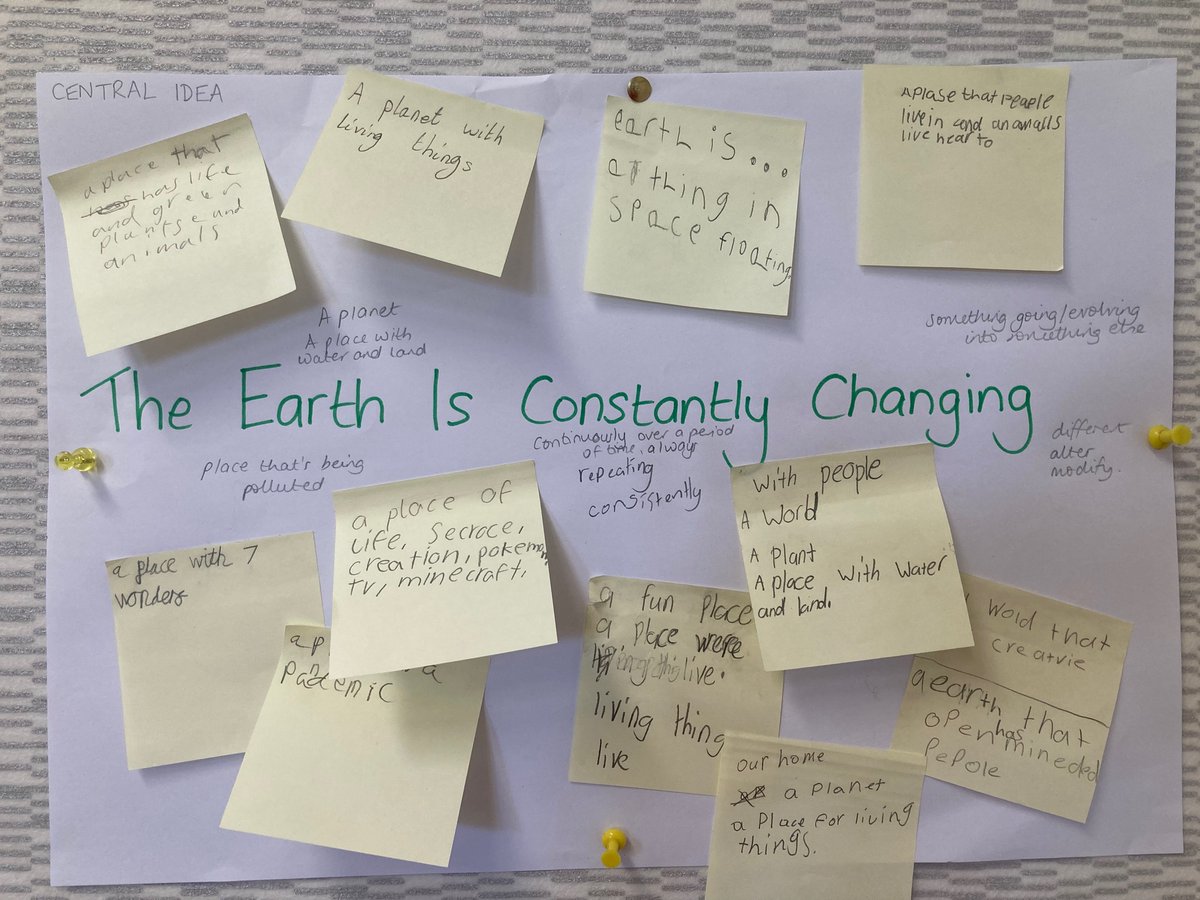 CENTRAL IDEA
a place that
has life
and green
plantse and
animals
A planet with
living things
earth is...
a thing in
space floating
A plase that people
live in and anamalls
live hear to
A planet
A place with
water and land
something going/evolving
into something else
The Earth Is Constantly Changing
place that's being
polluted
continuously over a period
of time, always
repeating
consistently
different
alter
modify.
a place with 7
wonders
a place of
life, Secrace,
creation, pokemon,
tv, minecraft,
a
pademic
a fun place
a place were
live.
living thing
live
with people
A word
A plant
A place with water
and land.
word that
creatvie
a earth that
has
open mineded
pepole
our home
a planet
a place for living
things.